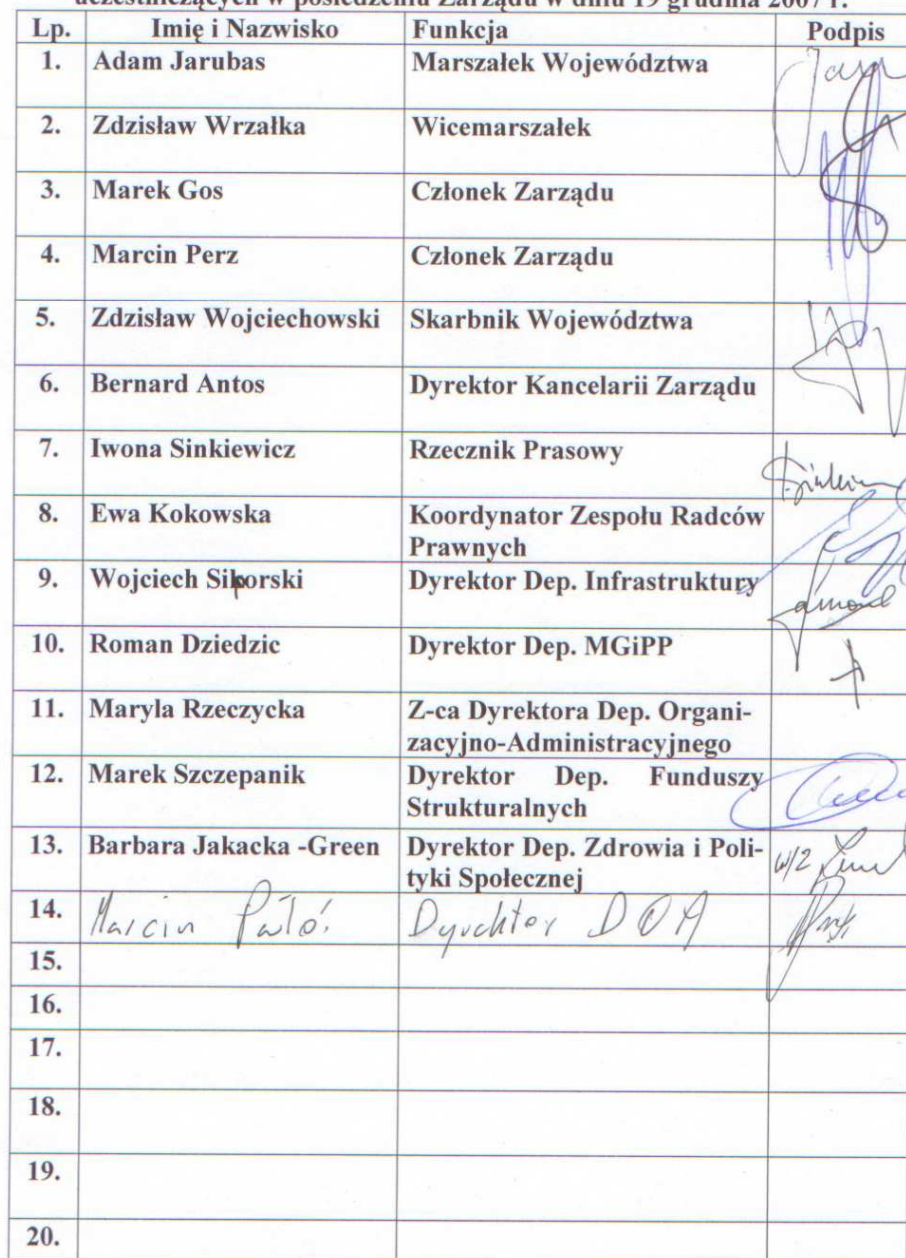 uczestniczących w posiedzeniu Zarządu w dniu 19 grudnia 2007 r.
Lp. Imię i Nazwisko Funkcja Podpis
1. Adam Jarubas Marszałek Województwa
2. Zdzisław Wrzałka Wicemarszałek
3. Marek Gos Członek Zarządu
4. Marcin Perz Członek Zarządu
5. Zdzisław Wojciechowski Skarbnik Województwa
6. Bernard Antos Dyrektor Kancelarii Zarządu
7. Iwona Sinkiewicz Rzecznik Prasowy
8. Ewa Kokowska Koordynator Zespołu Radców
Prawnych
9. Wojciech Siporski Dyrektor Dep. Infrastruktury
10. Roman Dziedzic Dyrektor Dep. MGiPP
11. Maryla Rzeczycka Z-ca Dyrektora Dep. Organi-
zacyjno-Administracyjnego
12. Marek Szczepanik Dyrektor Dep. Funduszy
Strukturalnych
13. Barbara Jakacka -Green Dyrektor Dep. Zdrowia i Poli-
tyki Społecznej w/z
14. Marcin Dyrektor DOA
15.
16.
17.
18.
19.
20.